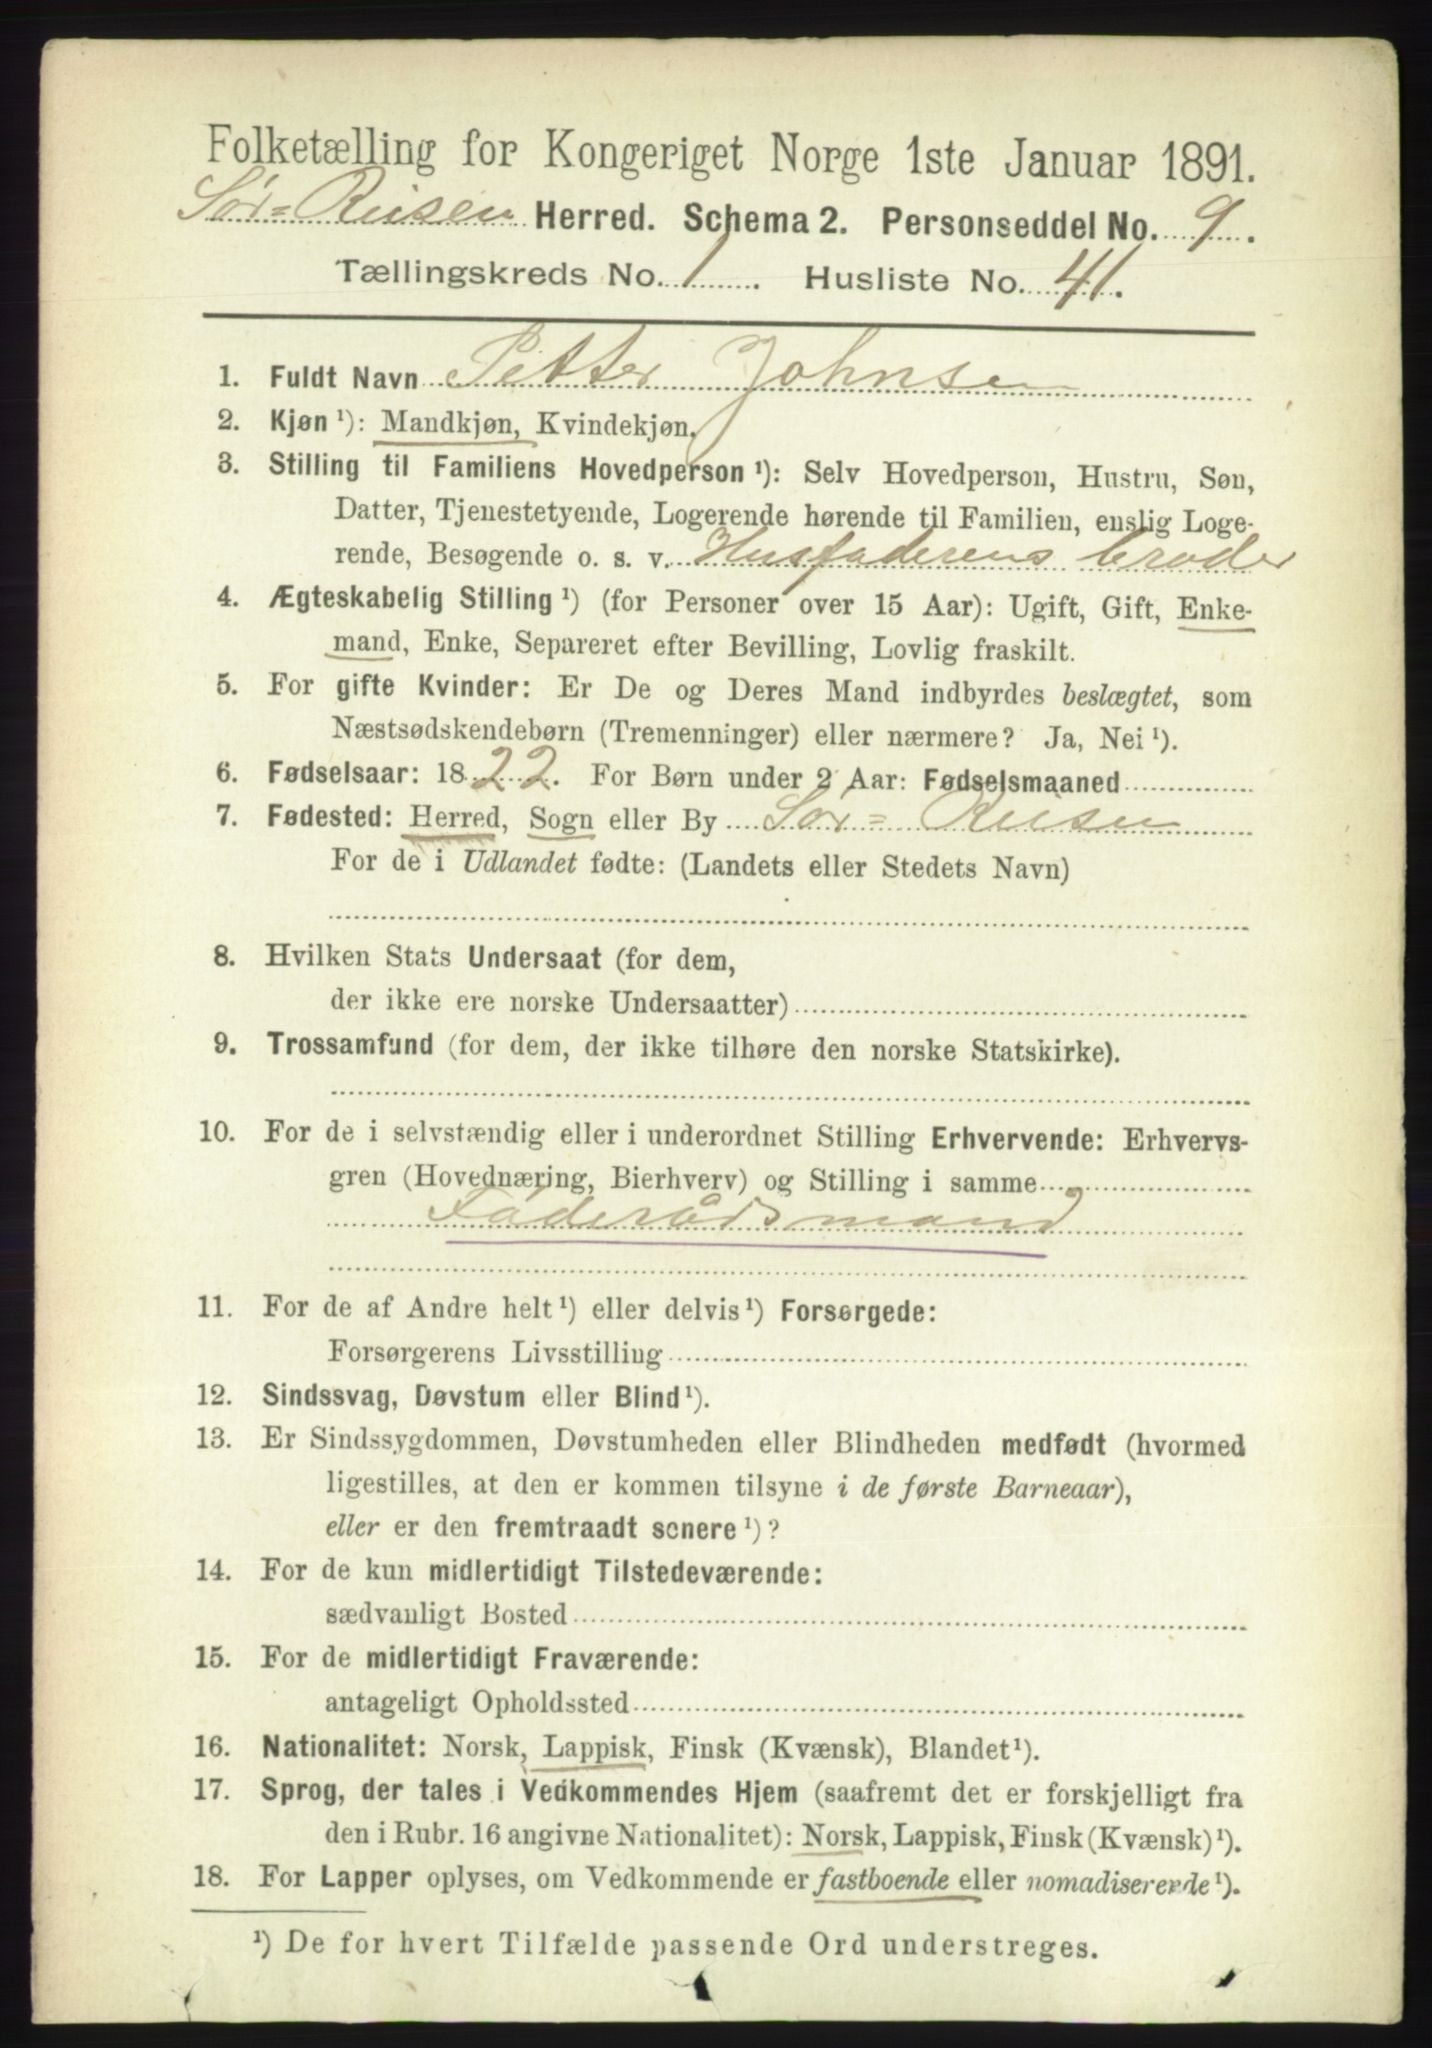 Folketælling for Kongeriget Norge 1ste Januar 1891.
Sør=Reisen Herred. Schema 2. Personseddel No. 9.
Tællingskreds No. 1. Husliste No. 41.
1. Fuldt Navn Petter Johnsen
2. Kjøn ¹): Mandkjøn, Kvindekjøn.
3. Stilling til Familiens Hovedperson ¹): Selv Hovedperson, Hustru, Søn,
Datter, Tjenestetyende, Logerende hørende til Familien, enslig Loge-
rende, Besøgende o. s. v. Husfaderens broder
4. Ægteskabelig Stilling ¹) (for Personer over 15 Aar): Ugift, Gift, Enke-
mand, Enke, Separeret efter Bevilling, Lovlig fraskilt.
5. For gifte Kvinder: Er De og Deres Mand indbyrdes beslægtet, som
Næstsødskendebørn (Tremenninger) eller nærmere? Ja, Nei ¹).
6. Fødselsaar: 1822. For Børn under 2 Aar: Fødselsmaaned
7. Fødested: Herred, Sogn eller By Sør=Reisen
For de i Udlandet fødte: (Landets eller Stedets Navn)
8. Hvilken Stats Undersaat (for dem,
der ikke ere norske Undersaatter)
9. Trossamfund (for dem, der ikke tilhøre den norske Statskirke).
10. For de i selvstændig eller i underordnet Stilling Erhvervende: Erhvervs-
gren (Hovednæring, Bierhverv) og Stilling i samme
Føderådsmand
11. For de af Andre helt ¹) eller delvis ¹) Forsørgede:
Forsørgerens Livsstilling
12. Sindssvag, Døvstum eller Blind ¹).
13. Er Sindssygdommen, Døvstumheden eller Blindheden medfødt (hvormed
ligestilles, at den er kommen tilsyne i de første Barneaar),
eller er den fremtraadt senere ¹)?
14. For de kun midlertidigt Tilstedeværende:
sædvanligt Bosted
15. For de midlertidigt Fraværende:
antageligt Opholdssted
16. Nationalitet: Norsk, Lappisk, Finsk (Kvænsk), Blandet ¹).
17. Sprog, der tales i Vedkommendes Hjem (saafremt det er forskjelligt fra
den i Rubr. 16 angivne Nationalitet): Norsk, Lappisk, Finsk (Kvænsk) ¹).
18. For Lapper oplyses, om Vedkommende er fastboende eller nomadiserende ¹).
¹) De for hvert Tilfælde passende Ord understreges.